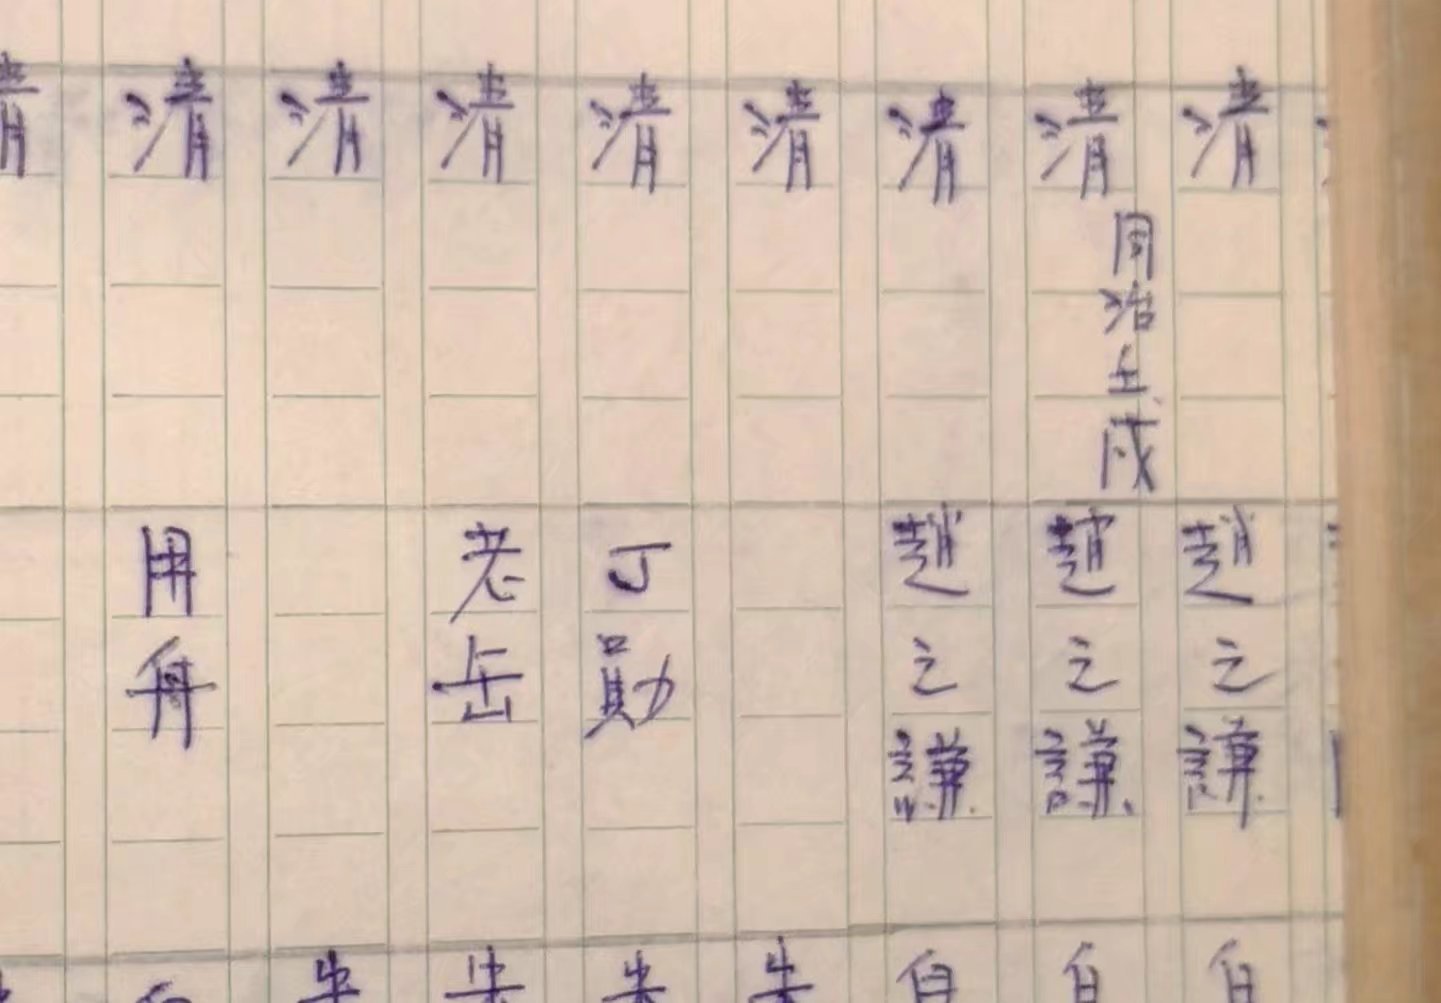 清 趙之謙 白
同治壬戌
清 趙之謙 白
清 趙之謙 白
清 朱
清 丁勛 朱
清 老岳 朱
清 朱
清 用舟 白
清